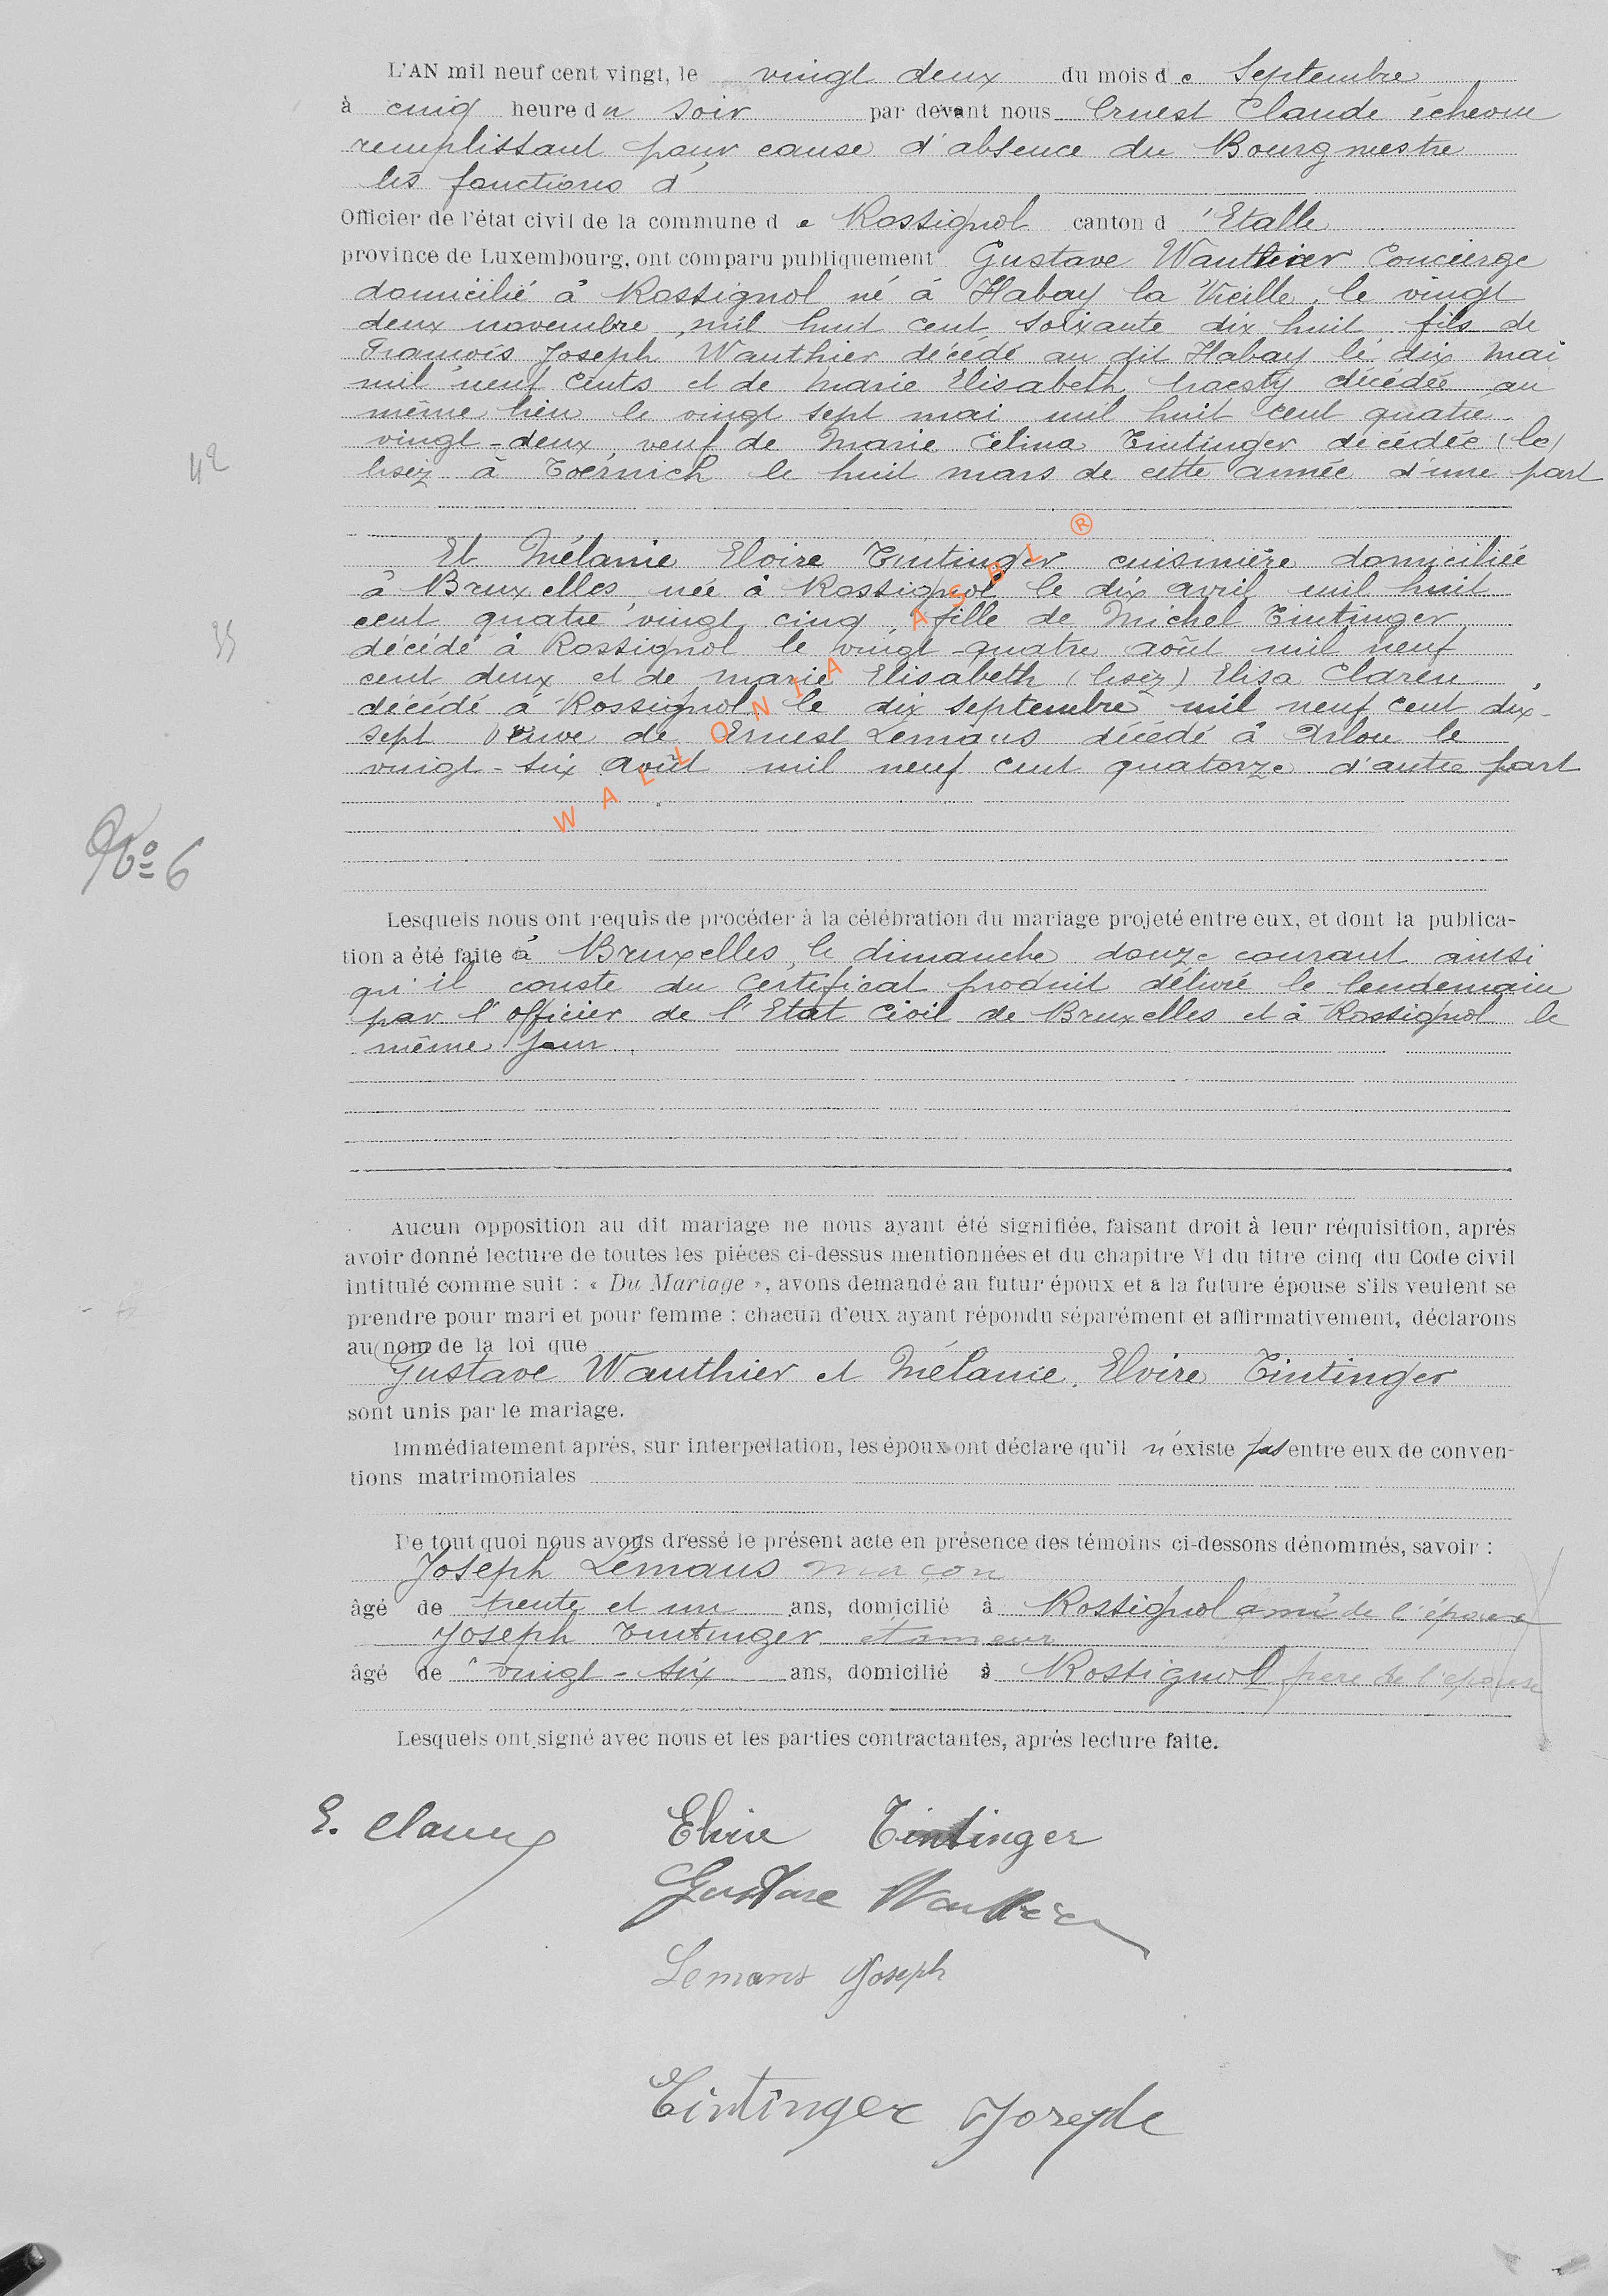 L'AN mil neuf cent vingt, le vingt deux du mois de Septembre
à cinq heure du soir par devant nous Ernest Claude échevin
remplissant pour cause d'absence du Bourgmestre
les fonctions d'
Officier de l'état civil de la commune de Rossignol canton d'Etalle
province de Luxembourg, ont comparu publiquement Gustave Wauthier Concierge
domicilié à Rossignol né à Habay la Vieille, le vingt
deux novembre mil huit cent soixante dix huit fils de
François Joseph Wauthier décédé au dit Habay le dix mai
mil neuf cents et de Marie Elisabeth décédée au
même lieu le vingt sept mai mil huit cent quatre
vingt-deux, veuf de Marie Célina Tintinger décédée (le)
42
lisez à Toernich le huit mars de cette année d'une part
Et Mélanie Elvire Tintinger cuisinière domiciliée
à Bruxelles, née à Rossignol le dix avril mil huit
cent quatre vingt cinq, fille de Michel Tintinger
35
décédé à Rossignol le vingt-quatre août mil neuf
cent deux et de marie Elisabeth (lisez) Elisa Claren
décédé à Rossignol, le dix septembre mil neuf cent dix-
sept Veuve de Ernest Lemaus décédé à Arlon le
vingt-six août mil neuf cent quatorze d'autre part
WALLONIA ASBL ®
No 6
Lesquels nous ont requis de procéder à la célébration du mariage projeté entre eux, et dont la publica-
tion a été faite à Bruxelles, le dimanche douze courant ainsi
qu'il conste du Certificat produit délivré le lendemain
par l'officier de l'Etat Civil de Bruxelles et à Rossignol le
même jour.
Aucun opposition au dit mariage ne nous ayant été signifiée, faisant droit à leur réquisition, après
avoir donné lecture de toutes les pièces ci-dessus mentionnées et du chapitre VI du titre cinq du Code civil
intitulé comme suit : « Du Mariage », avons demandé au futur époux et à la future épouse s'ils veulent se
prendre pour mari et pour femme : chacun d'eux ayant répondu séparément et affirmativement, déclarons
au nom de la loi que
Gustave Wauthier et Mélanie, Elvire Tintinger
sont unis par le mariage.
Immédiatement après, sur interpellation, les époux ont déclare qu'il n'existe pas entre eux de conven-
tions matrimoniales
De tout quoi nous avons dressé le présent acte en présence des témoins ci-dessons dénommés, savoir :
Joseph Lemaus maçon
âgé de trente et un ans, domicilié à Rossignol ami de l'épouse
Joseph Tintinger étameur
âgé de vingt-six ans, domicilié à Rossignol frère de l'épouse
Lesquels ont signé avec nous et les parties contractantes, après lecture faite.
E. Claude Elvire Tintinger
Gustave Wauthier
Lemaus Joseph
Tintinger Joseph